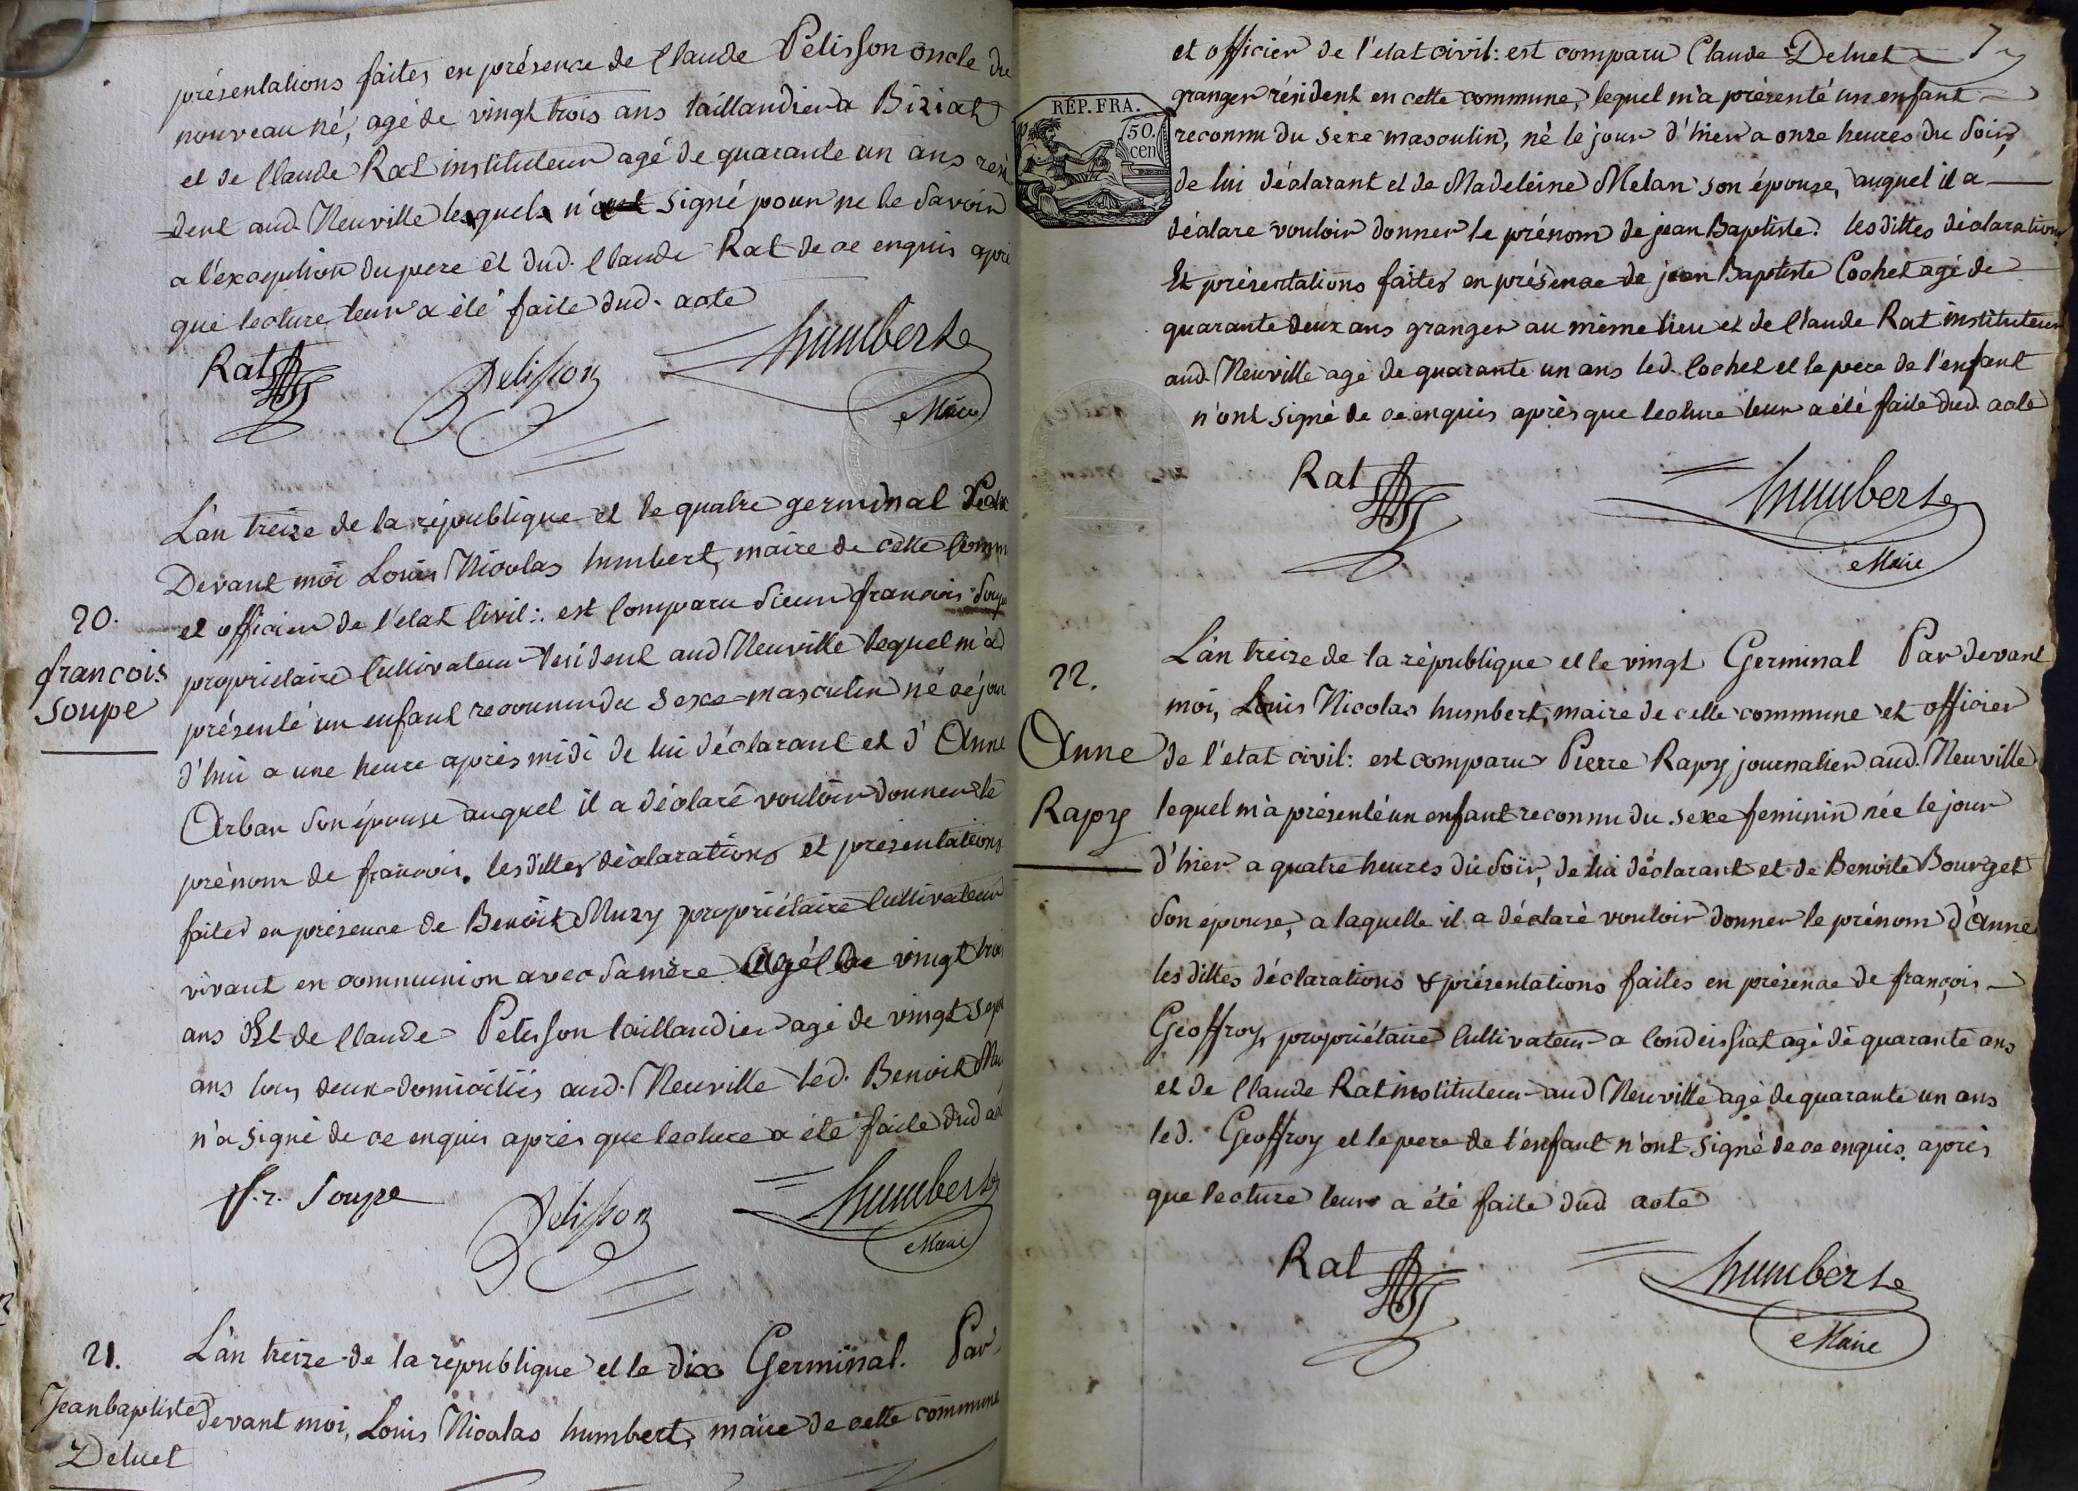 présentations faites en présence de Claude Pelisson oncle du
nouveau né, agé de vingt trois ans taillandier a Biziat
et de Claude Rat instituteur agé de quarante un ans resi
dent aud. Neuville lesquels n'ont signé pour ne le savoir
a l'exception du pere et dud. Claude Rat de ce enquis aprè
que lecture leur a été faite dud. acte
Rat Pelisson humbert
Maire
L'an treize de la république et le quatre germinal
Devant moi Louis Nicolas humbert, maire de cette Comm
20. et officier de l'état Civil: est Comparu Sieur francois Soupe
francois propriétaire Cultivateur résident aud Neuville lequel m'a
Soupe présenté un enfant reconnu du sexe masculin né ce jour
d'hui a une heure après midi de lui déclarant et d'Anne
Arban son épouse auquel il a déclaré vouloir donner le
prénom de francois. lesdittes déclarations et présentations
faites en présence de Benoît Muzy propriétaire Cultivateur
vivant en communion avec sa mère Agé de vingt trois
ans Et de Claude Pelisson taillandier agé de vingt sept
ans tous deux domiciliés aud. Neuville led. Benoit Mu
n'a signé de ce enquis après que lecture a été faite dud ac
f.r. Soupe Pelisson humbert
Maire
21. L'an treize de la république et le dix Germinal. Par
Jean baptiste devant moi, Louis Nicolas humbert, maire de cette commune
Deluet
7
et officier de l'état civil: est comparu Claude Deluet
granger résident en cette commune, lequel m'a présenté un enfant
REP. FRA.
50. cen
reconnu du sexe masculin, né le jour d'hier a onze heures du soir,
de lui déclarant et de Madeleine Melan son épouse, auquel il a
déclare vouloir donner le prénom de jean Baptiste. lesdittes déclarations
Et présentations faites en présence de jean Baptiste Cochet agé de
quarante deux ans granger au même lieu et de Claude Rat instituteur
aud. Neuville agé de quarante un ans led. Cochet et le pere de l'enfant
n'ont signé de ce enquis après que lecture leur a été faite dud. acte
Rat humbert
Maire
22. L'an treize de la république et le vingt Germinal Par devant
moi, Louis Nicolas humbert, maire de cette commune et officier
Anne de l'état civil: est comparu Pierre Rapy journalier aud. Neuville
Rapy lequel m'a présenté un enfant reconnu du sexe feminin née le jour
d'hier a quatre heures du soir, de lui déclarant et de Benoite Bourget
son épouse, a laquelle il a déclaré vouloir donner le prénom d'Anne
les dittes déclarations & présentations faites en présence de françois
Geoffroy, propriétaire Cultivateur a Condeissiat agé de quarante ans
et de Claude Rat instituteur aud Neuville agé de quarante un ans
led. Geoffroy et le pere de l'enfant n'ont signé de ce enquis après
que lecture leur a été faite dud acte
Rat humbert
Maire